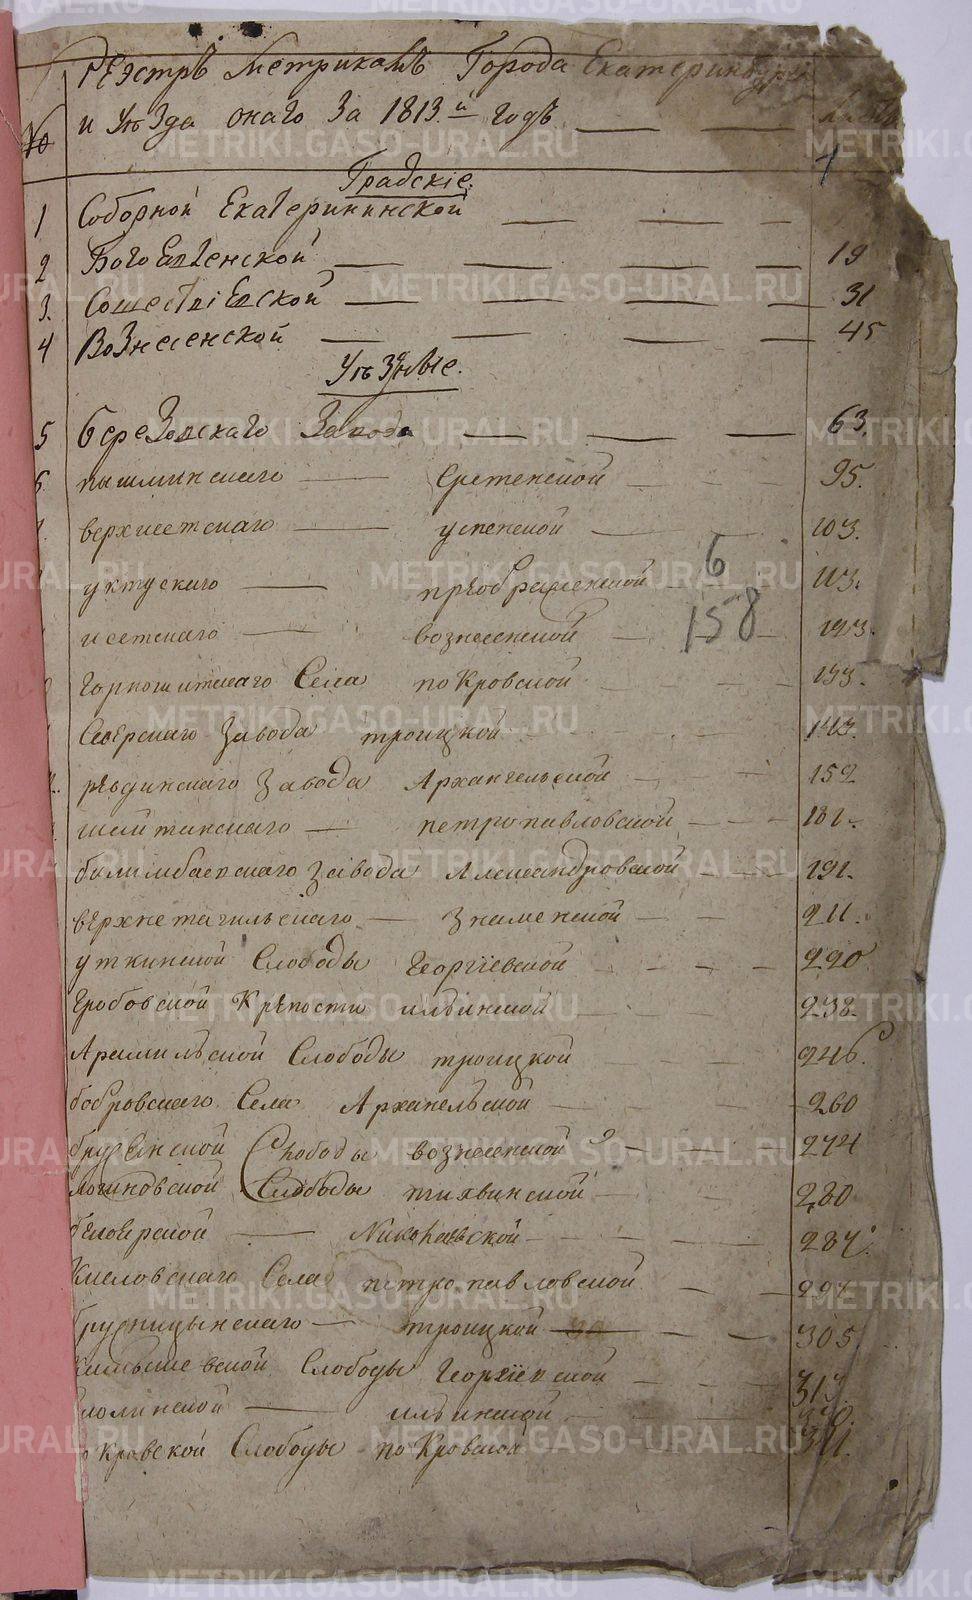 Реэстръ Метрикамъ Города Екатеринбурга
№ и Уѣзда онаго За 1813.й годъ
Градскіе.
1 Соборной Екатерининской
2 Богоявленской 19
3. Сошествіевской 31
4 Вознесенской 45
Уѣздные.
5 березовскаго Завода 63.
6 пышминскаго Сретенской 95.
верхисетскаго успенской 103.
уктускаго преображенской 113.
6
158
исетскаго вознесенской
горнощитскаго Села покровской 133.
Северскаго завода троицкой 143.
ревдинскаго завода Архангельской 152
шайтанскаго петропавловской 181.
билимбаевскаго завода Александровской 191.
верхнетагильскаго Знаменской 211.
уткинской Слободы Георгіевской 220
Гробовской Крѣпости ильинской 238.
Арамильской Слободы троицкой 246.
бобровскаго Села Архангельской 260
брусянской Слободы вознесенской 274
логиновской Слободы тихвинской 280
белоярской Николаевской 287.
Кисловскаго Села петропавловской 297
брусницынскаго троицкой 305.
Камышевской Слободы Георгіевской 313
ильинской
покровской Слободы покровской
METRIKI.GASO-URAL.RU